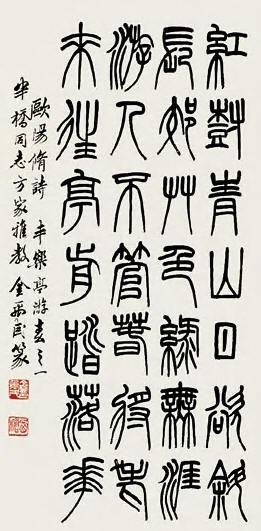 紅樹青山日欲斜
長郊艸色綠無涯
游人不管春將老
來往亭歬踏落華
歐陽脩詩 丰樂亭游春之一
橋同志方家雅教 金禹民篆